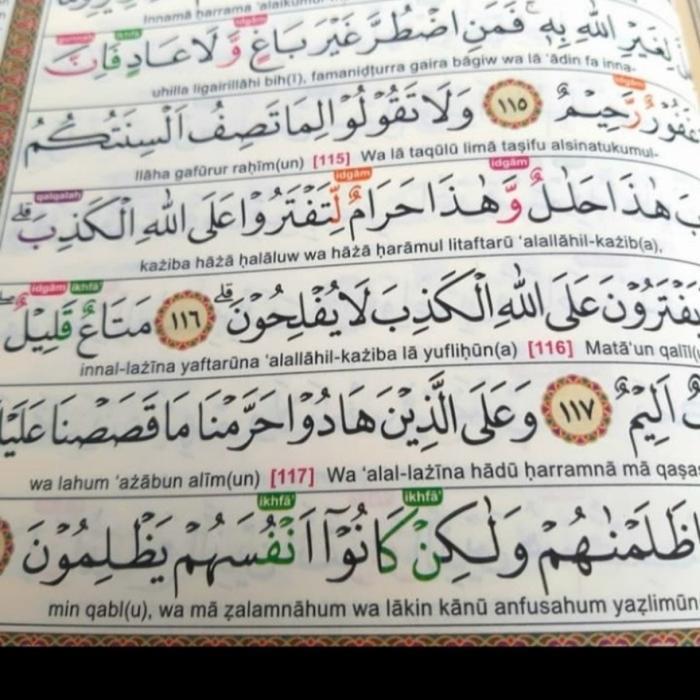 Innamā ḥarrama 'alaikumul
idgām
لِغَيْرِ اللّٰهِ بِهٖ ۚ فَمَنِ اضْطُرَّ غَيْرَ بَاغٍ وَّلَا عَادٍ فَاِنَّ
uhilla ligairillāhi bih(ī), famaniḍṭurra gaira bāgiw wa lā 'ādin fa inna-
idgām
غَفُوْرٌ رَّحِيْمٌ ١١٥ وَلَا تَقُوْلُوْا لِمَا تَصِفُ اَلْسِنَتُكُمُ
llāha gafūrur raḥīm(un) [115] Wa lā taqūlū limā taṣifu alsinatukumul-
qalqalah idgām idgām
هٰذَا حَلٰلٌ وَّهٰذَا حَرَامٌ لِّتَفْتَرُوْا عَلَى اللّٰهِ الْكَذِبَ ۗ
każiba hāżā ḥalāluw wa hāżā ḥarāmul litaftarū 'alallāhil-każib(a),
idgām ikhfā'
يَفْتَرُوْنَ عَلَى اللّٰهِ الْكَذِبَ لَا يُفْلِحُوْنَ ۗ ١١٦ مَتَاعٌ قَلِيْلٌ
innal-lażīna yaftarūna 'alallāhil-każiba lā yufliḥūn(a) [116] Matā'un qalīl
اَلِيْمٌ ١١٧ وَعَلَى الَّذِيْنَ هَادُوْا حَرَّمْنَا مَا قَصَصْنَا
wa lahum 'ażābun alīm(un) [117] Wa 'alal-lażīna hādū ḥarramnā mā qaṣa
ikhfā' ikhfā'
ظَلَمْنٰهُمْ وَلٰكِنْ كَانُوْٓا اَنْفُسَهُمْ يَظْلِمُوْنَ
min qabl(u), wa mā ẓalamnāhum wa lākin kānū anfusahum yaẓlimūn